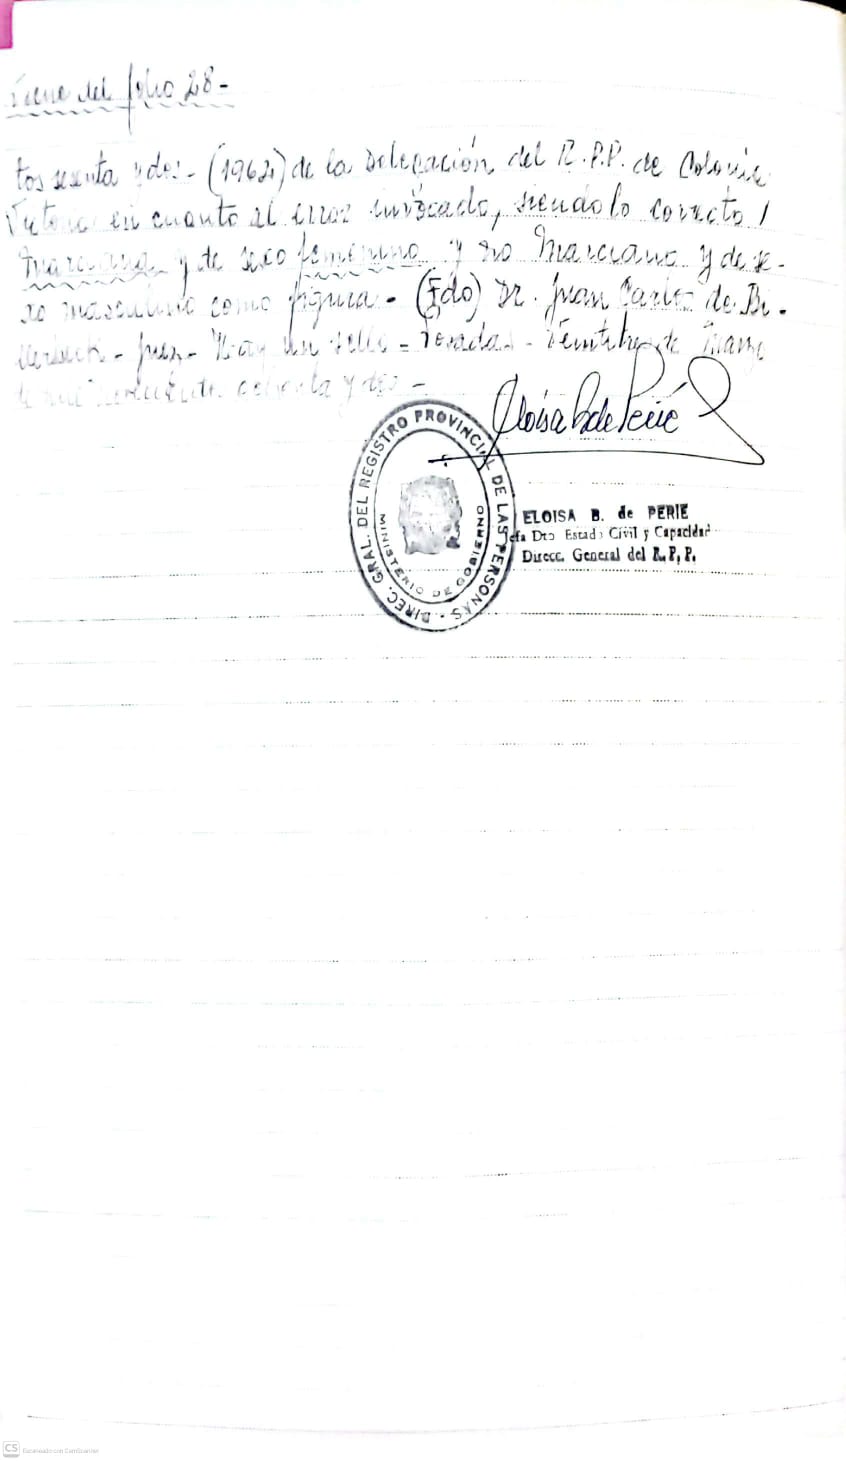 Viene del folio 28-
tos sesenta y dos- (1962) de la Delegación del R.P.P. de Colonia
Victoria en cuanto al error invocado, siendo lo correcto /
Marciana y de sexo femenino y no Marciano y de se-
xo masculino como figura- (Fdo) Dr. Juan Carlos de Bi-
- Juez- Hay un sello = Posadas- Veintitres de Marzo
de mil novecientos ochenta y dos -
Eloisa B de Perié
DIREC. GRAL. DEL REGISTRO PROVINCIAL DE LAS PERSONAS
MINISTERIO DE GOBIERNO
ELOISA B. de PERIE
Jefa Dto Estado Civil y Capacidad
Direcc. General del R. P. P.
CS Escaneado con CamScanner